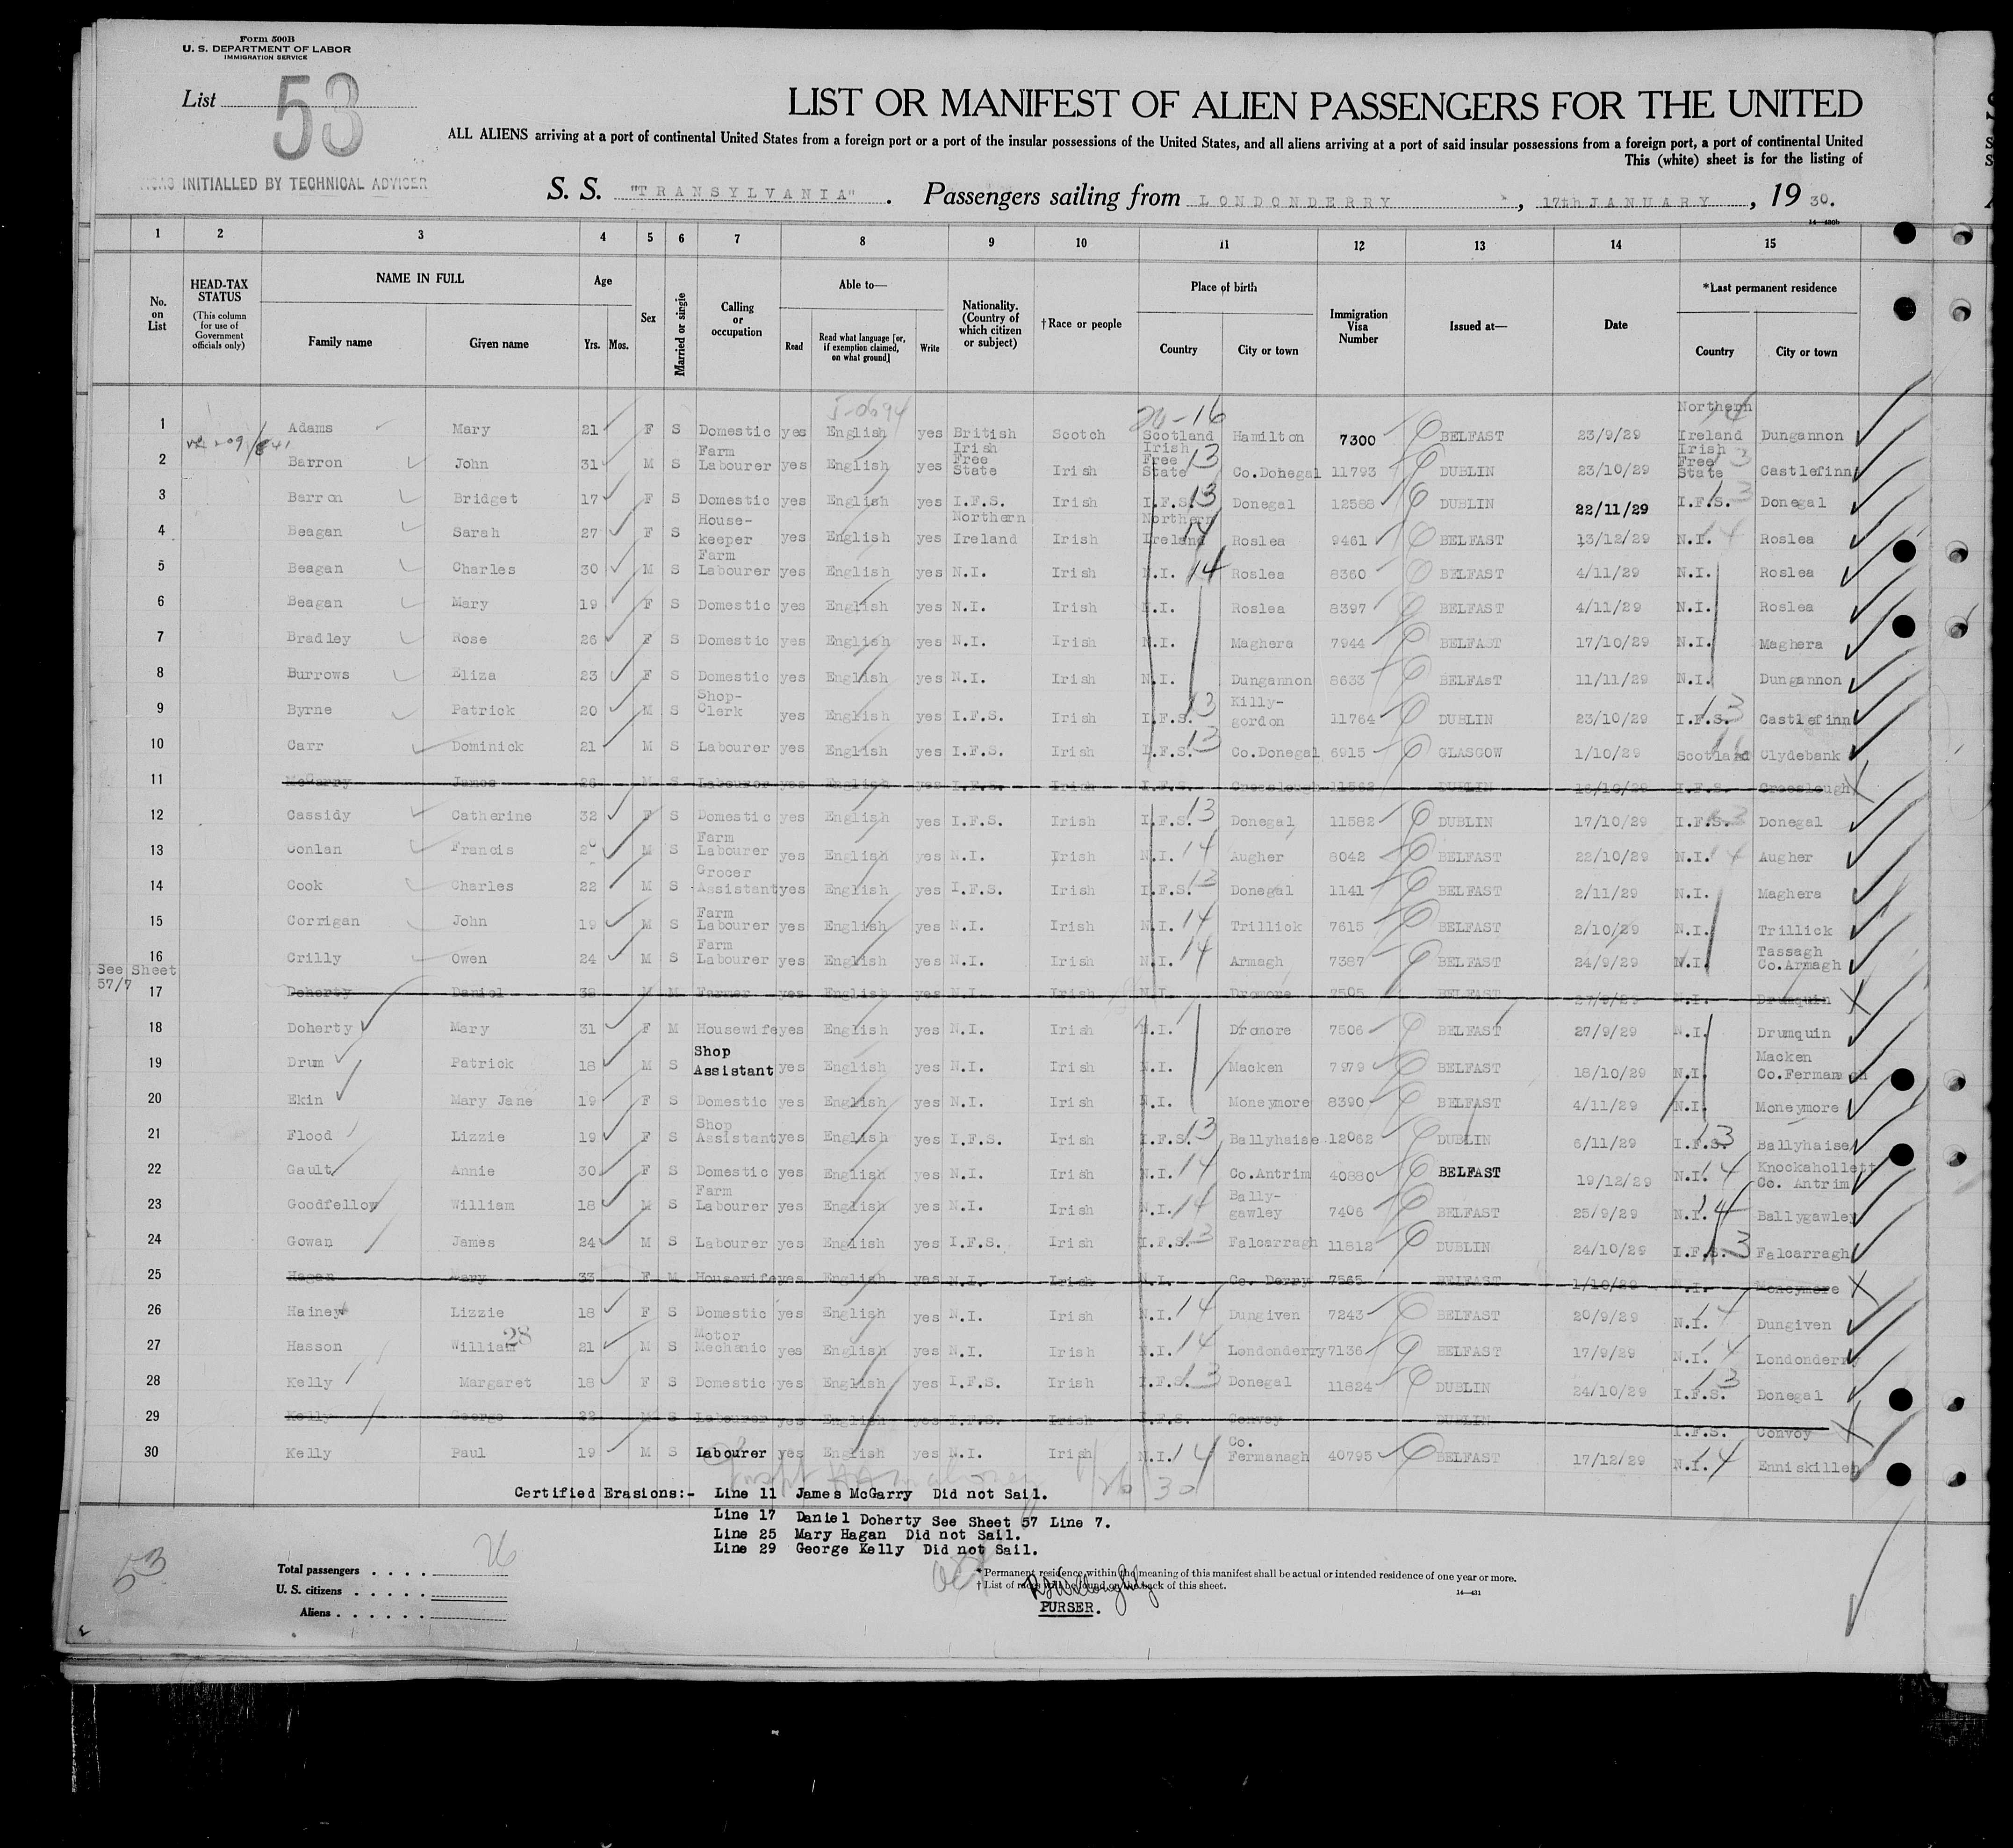 Form 500B
U. S. DEPARTMENT OF LABOR
IMMIGRATION SERVICE
List 53
LIST OR MANIFEST OF ALIEN PASSENGERS FOR THE UNITED
ALL ALIENS arriving at a port of continental United States from a foreign port or a port of the insular possessions of the United States, and all aliens arriving at a port of said insular possessions from a foreign port, a port of continental United
This (white) sheet is for the listing of
INITIALLED BY TECHNICAL ADVISER
S. S. "TRANSYLVANIA". Passengers sailing from LONDONDERRY, 17th JANUARY, 1930.
14—430b
1 2 3 4 5 6 7 8 9 10 11 12 13 14 15
No. on List HEAD-TAX STATUS (This column for use of Government officials only) NAME IN FULL Family name Given name Age Yrs. Mos. Sex Married or single Calling or occupation Able to— Read Read what language [or, if exemption claimed, on what ground] Write Nationality. (Country of which citizen or subject) †Race or people Place of birth Country City or town Immigration Visa Number Issued at— Date *Last permanent residence Country City or town
1 Adams Mary 21 F S Domestic yes English yes British Scotch Scotland Hamilton 7300 BELFAST 23/9/29 Northern Ireland Dungannon
2 Barron John 31 M S Farm Labourer yes English yes Irish Free State Irish Irish Free State 13 Co.Donegal 11793 DUBLIN 23/10/29 Irish Free State Castlefinn
3 Barron Bridget 17 F S Domestic yes English yes I.F.S. Irish I.F.S. 13 Donegal 12588 DUBLIN 22/11/29 I.F.S. 13 Donegal
4 Beagan Sarah 27 F S House-keeper yes English yes Northern Ireland Irish Northern Ireland 14 Roslea 9461 BELFAST 13/12/29 N.I. 14 Roslea
5 Beagan Charles 30 M S Farm Labourer yes English yes N.I. Irish N.I. 14 Roslea 8360 BELFAST 4/11/29 N.I. Roslea
6 Beagan Mary 19 F S Domestic yes English yes N.I. Irish N.I. Roslea 8397 BELFAST 4/11/29 N.I. Roslea
7 Bradley Rose 26 F S Domestic yes English yes N.I. Irish N.I. Maghera 7944 BELFAST 17/10/29 N.I. Maghera
8 Burrows Eliza 23 F S Domestic yes English yes N.I. Irish N.I. Dungannon 8633 BELFAST 11/11/29 N.I. Dungannon
9 Byrne Patrick 20 M S Shop-Clerk yes English yes I.F.S. Irish I.F.S. 13 Killy-gordon 11764 DUBLIN 23/10/29 I.F.S. 13 Castlefinn
10 Carr Dominick 21 M S Labourer yes English yes I.F.S. Irish I.F.S. 13 Co.Donegal 6915 GLASGOW 1/10/29 Scotland Clydebank
11 McGarry James 26 M S Labourer yes English yes I.F.S. Irish I.F.S. Creeslough 11562 DUBLIN 16/10/29 I.F.S. Creeslough
12 Cassidy Catherine 32 F S Domestic yes English yes I.F.S. Irish I.F.S. 13 Donegal 11582 DUBLIN 17/10/29 I.F.S. 13 Donegal
13 Conlan Francis M S Farm Labourer yes English yes N.I. Irish N.I. 14 Augher 8042 BELFAST 22/10/29 N.I. 14 Augher
14 Cook Charles 22 M S Grocer Assistant yes English yes I.F.S. Irish I.F.S. 13 Donegal 1141 BELFAST 2/11/29 N.I. Maghera
15 Corrigan John 19 M S Farm Labourer yes English yes N.I. Irish N.I. 14 Trillick 7615 BELFAST 2/10/29 N.I. Trillick
16 Crilly Owen 24 M S Farm Labourer yes English yes N.I. Irish N.I. 14 Armagh 7387 BELFAST 24/9/29 N.I. Tassagh Co.Armagh
See Sheet 57/7
17 Doherty Daniel 38 M M Farmer yes English yes N.I. Irish N.I. Dromore 7505 BELFAST 27/9/29 N.I. Drumquin
18 Doherty Mary 31 F M Housewife yes English yes N.I. Irish N.I. Dromore 7506 BELFAST 27/9/29 N.I. Drumquin
19 Drum Patrick 18 M S Shop Assistant yes English yes N.I. Irish N.I. Macken 7979 BELFAST 18/10/29 N.I. Macken Co.Fermanagh
20 Ekin Mary Jane 19 F S Domestic yes English yes N.I. Irish N.I. Moneymore 8390 BELFAST 4/11/29 N.I. Moneymore
21 Flood Lizzie 19 F S Shop Assistant yes English yes I.F.S. Irish I.F.S. 13 Ballyhaise 12062 DUBLIN 6/11/29 I.F.S. 13 Ballyhaise
22 Gault Annie 30 F S Domestic yes English yes N.I. Irish N.I. 14 Co.Antrim 40880 BELFAST 19/12/29 N.I. 14 Knockahollett Co. Antrim
23 Goodfellow William 18 M S Farm Labourer yes English yes N.I. Irish N.I. 14 Bally-gawley 7406 BELFAST 25/9/29 N.I. 14 Ballygawley
24 Gowan James 24 M S Labourer yes English yes I.F.S. Irish I.F.S. 13 Falcarragh 11812 DUBLIN 24/10/29 I.F.S. 13 Falcarragh
25 Hagan Mary 33 F M Housewife yes English yes N.I. Irish N.I. Co. Derry 7565 BELFAST 1/10/29 N.I. Moneymore
26 Hainey Lizzie 18 F S Domestic yes English yes N.I. Irish N.I. 14 Dungiven 7243 BELFAST 20/9/29 N.I. 14 Dungiven
27 Hasson William 28 21 M S Motor Mechanic yes English yes N.I. Irish N.I. 14 Londonderry 7136 BELFAST 17/9/29 N.I. 14 Londonderry
28 Kelly Margaret 18 F S Domestic yes English yes I.F.S. Irish I.F.S. 13 Donegal 11824 DUBLIN 24/10/29 I.F.S. 13 Donegal
29 Kelly George 22 M S Labourer yes English yes I.F.S. Irish I.F.S. Convoy DUBLIN I.F.S. Convoy
30 Kelly Paul 19 M S Labourer yes English yes N.I. Irish N.I. 14 Co. Fermanagh 40795 BELFAST 17/12/29 N.I. 14 Enniskillen
Certified Erasions:- Line 11 James McGarry Did not Sail.
Line 17 Daniel Doherty See Sheet 57 Line 7.
Line 25 Mary Hagan Did not Sail.
Line 29 George Kelly Did not Sail.
53
Total passengers . . . . 26
U. S. citizens . . . . .
Aliens . . . . . .
* Permanent residence within the meaning of this manifest shall be actual or intended residence of one year or more.
† List of races will be found on the back of this sheet.
14—431
PURSER.